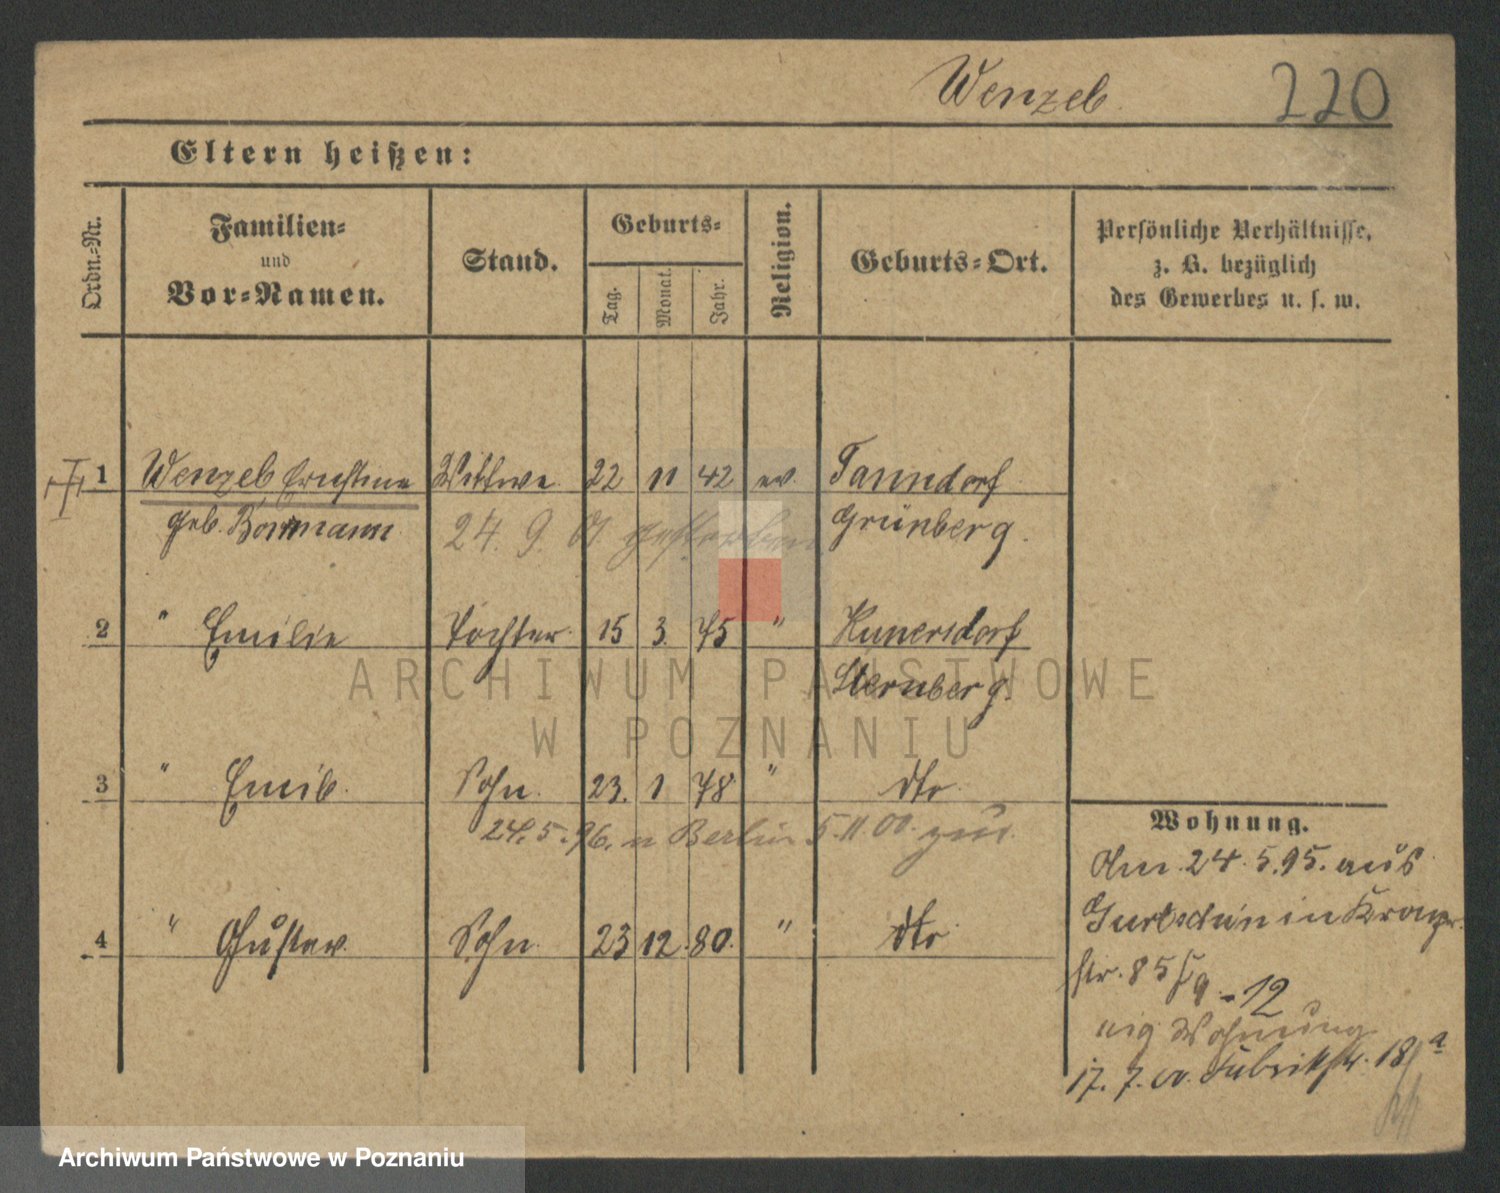 Wenzel 220
Eltern heißen:
Ordn.-Nr.
Familien-
und
Vor-Namen.
Stand.
Geburts-
Tag.
Monat.
Jahr.
Religion.
Geburts-Ort.
Persönliche Verhältnisse,
z. B. bezüglich
des Gewerbes u. s. w.
1 Wenzel Ernstine Wittwe 22 11 42 ev. Tanndorf
geb. Bormann 24. 9. 01 gestorben Grünberg.
2 " Emilie Tochter 15 3. 75 " Kunersdorf
Sternberg.
3 " Emil. Sohn. 23. 1 78 " dto.
24. 5. 96. n Berlin 5. 11. 00. zur.
4 " Gustav. Sohn. 23 12. 80. " dto.
Wohnung.
Am 24. 5. 95. aus
Gurtschin in
str. 85 - 12
Wohnung
17. 7. 00. Fabrikstr. 18/a
ARCHIWUM PAŃSTWOWE
W POZNANIU
Archiwum Państwowe w Poznaniu